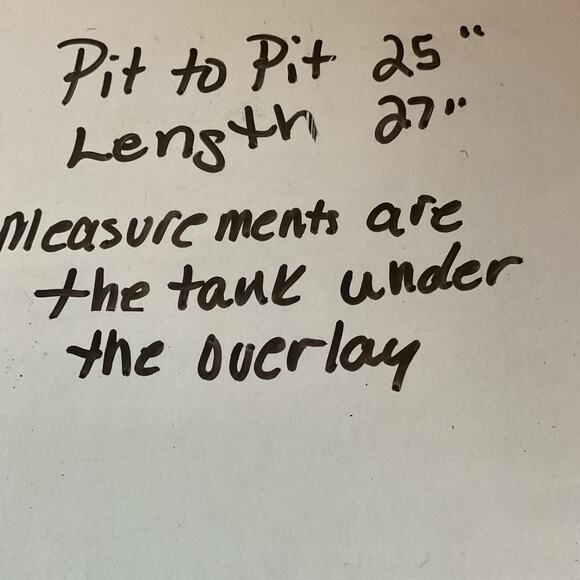 Pit to Pit 25"
Length 27"
Measurements are
the tank under
the overlay